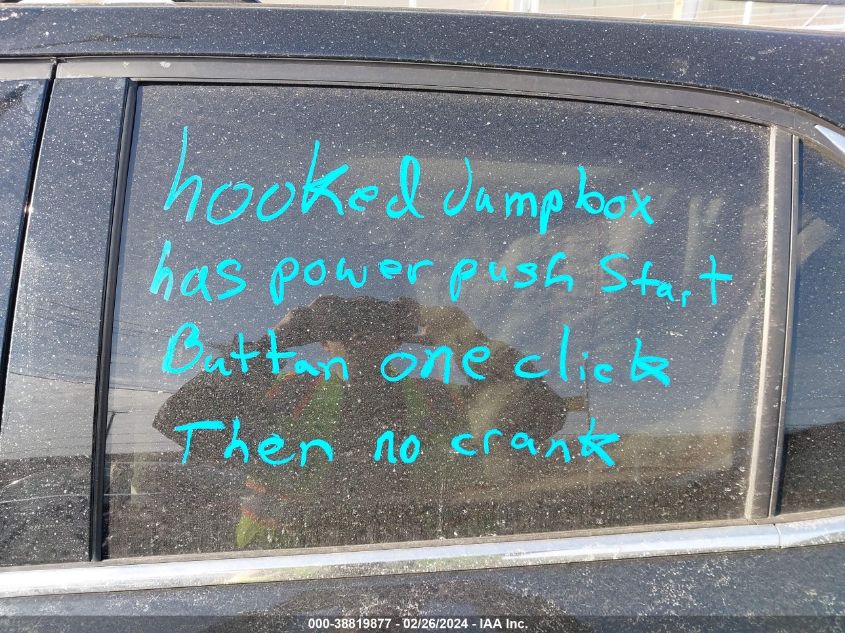 hooked Jumpbox
has power push Start
Buttan one click
Then no crank
000-38819877 - 02/26/2024 - IAA Inc.